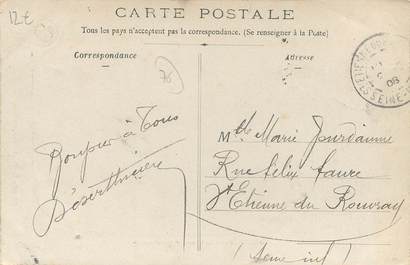 12€
CARTE POSTALE
Tous les pays n'acceptent pas la correspondance. (Se renseigner à la Poste)
Correspondance
Adresse
76
Bonjour à Tous
Mlle Marie
Rue Félix Faure
St Etienne du Rouvray
(Seine inf)
08